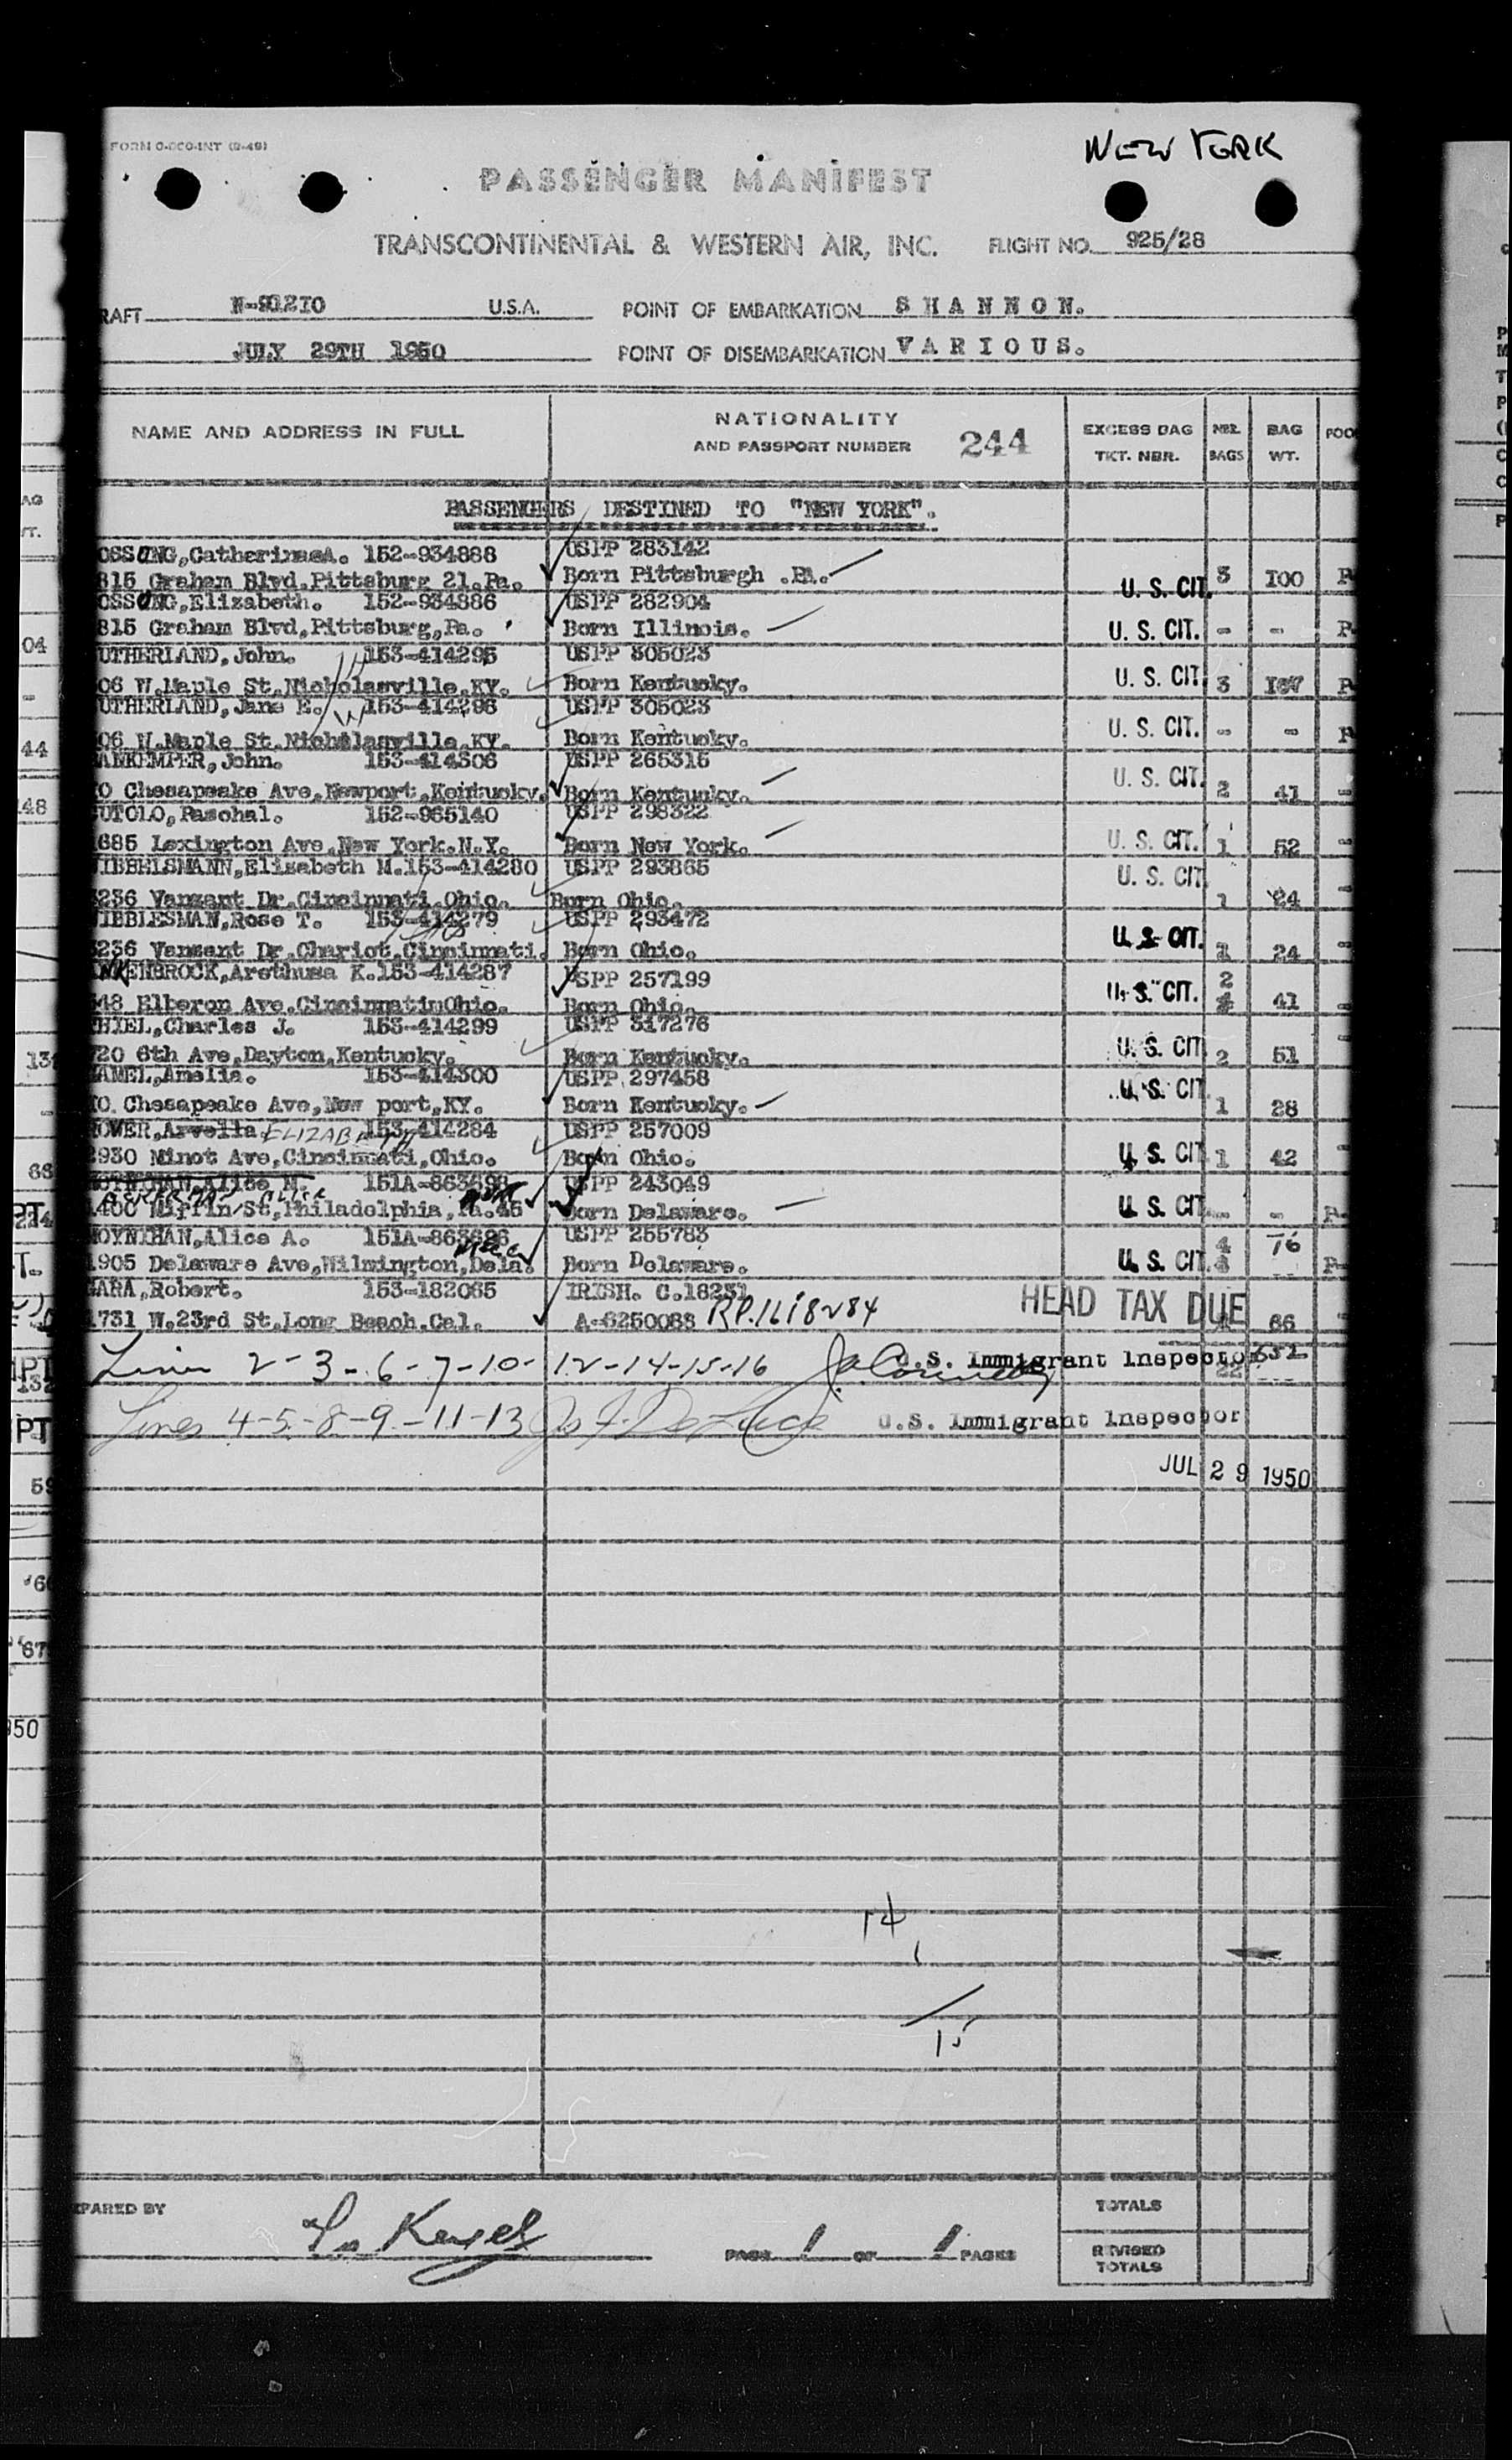 FORM O-000-INT (9-49)
NEW YORK
PASSENGER MANIFEST
TRANSCONTINENTAL & WESTERN AIR, INC. FLIGHT NO. 925/28
RAFT N-91210 U.S.A. POINT OF EMBARKATION SHANNON.
JULY 29TH 1950 POINT OF DISEMBARKATION VARIOUS.
NAME AND ADDRESS IN FULL NATIONALITY AND PASSPORT NUMBER 244 EXCESS BAG TKT. NBR. NBR. BAGS BAG WT. FOO
PASSENGERS DESTINED TO "NEW YORK".
OSSONG,Catherine A. 152-934888 USPP 283142
815 Graham Blvd.Pittsburg 21.Pa. Born Pittsburgh .PA. U. S. CIT. 3 100 P
OSSONG,Elizabeth. 152-934886 USPP 282904
815 Graham Blvd,Pittsburg,Pa. Born Illinois. U. S. CIT. - - P
UTHERLAND, John. 153-414295 USPP 305023
06 W.Maple St.Nicholasville.KY. Born Kentucky. U. S. CIT. 3 P
UTHERLAND, Jane E. 153-414296 USPP 305023
06 W.Maple St.Nicholasville.KY. Born Kentucky. U. S. CIT. - - P
ANKEMPER, John. 153-414306 USPP 265315
0 Chesapeake Ave.Newport.Kentucky. Born Kentucky. U. S. CIT. 2 41 -
UTOLO, Paschal. 152-965140 USPP 298322
1685 Lexington Ave.New York.N.Y. Born New York. U. S. CIT. 1 52 -
IBBELSMANN,Elizabeth M.153-414280 USPP 293865
3236 Vanzant Dr.Cincinnati.Ohio. Born Ohio. U. S. CIT. 1 24 -
IBBLESMAN,Rose T. 153-414279 USPP 293472
3236 Vanzant Dr.Chariot.Cincinnati. Born Ohio. U. S. CIT. 1 24 -
NKENBROCK,Arethusa K.153-414287 USPP 257199
548 Elberon Ave.Cincinnati Ohio. Born Ohio. U. S. CIT. 2 41 -
THIEL,Charles J. 153-414299 USPP 317276
720 6th Ave.Dayton.Kentucky. Born Kentucky. U. S. CIT. 2 51 -
HAMEL,Amelia. 153-414300 USPP 297458
10. Chesapeake Ave,New port,KY. Born Kentucky. U. S. CIT. 1 28 -
OVER,Arvella ELIZABETH 153-414284 USPP 257009
2930 Minot Ave,Cincinnati,Ohio. Born Ohio. U. S. CIT. 1 42 -
MOYNIHAN,Alice M. 151A-863698 USPP 243049
1400 Mifflin St,Philadelphia,Pa.45 Born Delaware. U. S. CIT. - - P
MOYNIHAN,Alice A. 151A-863696 USPP 255783
1905 Delaware Ave,Wilmington,Dela. Born Delaware. U. S. CIT. 4 76 P
HARA,Robert. 153-182065 IRISH. C.18231
1731 W.23rd St.Long Beach.Cal. A-6250088 RP.1618284 HEAD TAX DUE 66
Lines 2-3-6-7-10-12-14-15-16 U.S. Immigrant Inspector
Lines 4-5-8-9-11-13 U.S. Immigrant Inspector
JUL 29 1950
14
1
15
EPARED BY
PAGE 1 OF 1 PAGES
TOTALS
REVISED TOTALS